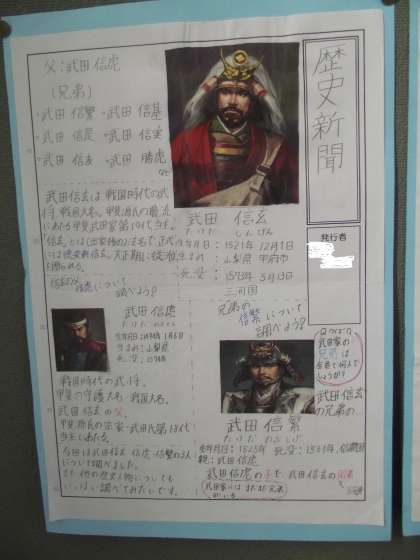 歴史新聞
発行者
父:武田 信虎
(兄弟)
・武田 信繁 ・武田 信基
・武田 信是 ・武田 信実
・武田 信友 ・武田 勝虎
など
武田 信玄
たけだ しんげん
生年月日:1521年 12月1日
生まれ:山梨県 甲府市
死没:1573年 5月13日
三河国
武田信玄は、戦国時代の武
将、戦国大名。甲斐源氏の嫡流に
あたる甲斐武田家第19代当主。
について
調べよう!
武田 信虎
たけだ のぶとら
生まれ:山梨県
死没:1574年
戦国時代の武将。
甲斐の守護大名・戦国大名。
武田 信玄の父。
甲斐源氏の宗家・武田氏第18代
当主である。
今回は武田信玄・信虎・信繁の3人
について調べました。
また他の歴史人物についても
いっぱい調べてみたいです。
兄弟の
信繁について
調べよう!
武田家の
兄弟は
全員で何人で
しょうか?
武田 信玄
の兄弟の…
武田 信繁
たけだ のぶしげ
生年月日:1525年 死没:1561年
親:武田 信虎
武田信虎の子で、武田信玄の
武田家にはまだまだ兄弟
がいる